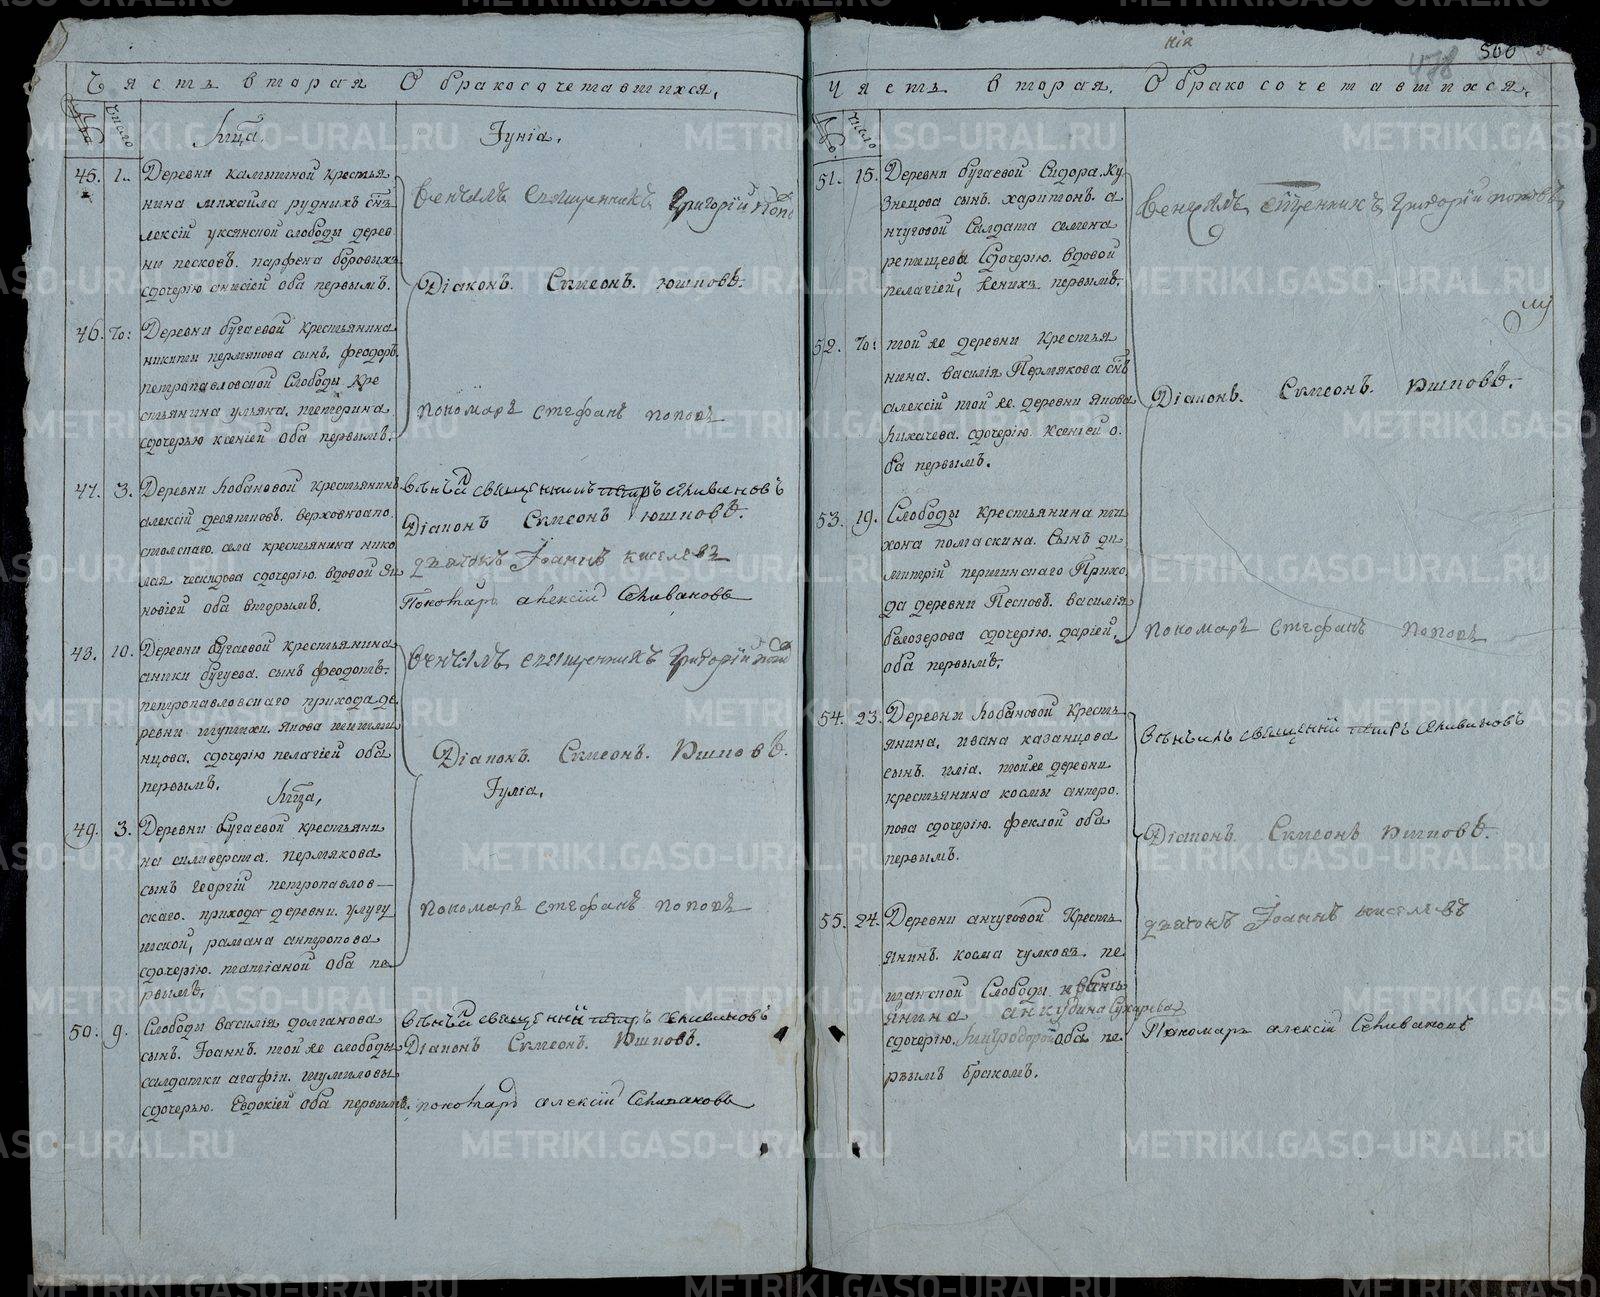 Часть вторая О бракосочетавшихся.
№ число
Мца Іуніа.
45. 1. Деревни камышной крестья
нина михайла рудныхъ снъ
алексій уксянской слободы дерев
ни песковъ. парфена боровихъ
сдочерію анисіей оба первымъ.
Венчалъ священникъ Григорій Попо
Діаконъ. Сѵмеонъ. юшковъ.
46. то: Деревни бугаевой крестьянина
никиты пермякова сынъ. феодоръ.
петропавловской Слободы кре
стьянина ульяка. тетерина
сдочерью ксеніей оба первымъ.
пономарь стефанъ поповъ
47. 3. Деревни лобановой крестьянинъ
алексій десятковъ. верховноапо
столскаго. села крестьянина нико
лая сдочерію. вдовой
оба вторымъ.
венъчалъ священникъ петръ селивановъ
Діаконъ Сѵмеонъ юшковъ.
дьячокъ Іоаннъ киселевъ
Пономарь алексій Селивановъ
48. 10. Деревни бугаевой крестьянина
аники бугуева. сынъ феодотъ.
петропавловскаго прихода де
ревни якова шишми
нцова. сдочерію пелагіей оба
первымъ.
венчалъ священникъ Григорій попов
Діаконъ. Сѵмеонъ. Юшковъ.
Мца, Іуліа.
49. 3. Деревни бугаевой крестьяни
на силиверста. пермякова
сынъ георгій петропавлов—
скаго. прихода деревни. улугу
шской, рамана антропова
сдочерію. татіаной оба пе
рвымъ.
пономарь стефанъ поповъ
50. 9. Слободы василія долганова
сынъ. Іоаннъ. той же слободы
салдатки агафіи. шумиловы
сдочерью. Евдокіей оба первымъ.
венъчалъ священный петръ селивановъ
Діаконъ Сѵмеонъ. Юшковъ.
пономарь алексій Селивановъ
нія
478 500
Часть вторая. О бракосочетавшихся.
№ число
51. 15. Деревни бугаевой Сидора. Ку
знецова сынъ. харитонъ. а
нчуговой Салдата семена
репищева Сдочерію. вдовой
пелагіей, Женихъ первымъ.
Венчалъ сщенникъ Григорій поповъ
52. то: той же деревни крестья
нина. василія Пермякова снъ
алексій той же. деревни якова
лихачева. сдочерію. ксеніей о.
ба первымъ.
Діаконъ. Сѵмеонъ. Юшковъ.
53. 19. Слободы крестьянина ти
хона полтаскина. Сынъ ди
митрій першинскаго Прихо
да деревни Песковъ. василія
белозерова сдочерію. даріей.
оба первымъ.
пономарь стефанъ поповъ
54. 23. Деревни лобановой Кресть
янина. ивана казанцова
сынъ. иліа. той же деревни
крестьянина космы антро.
пова сдочерію. феклой оба
первымъ.
венъчалъ священный петръ селивановъ
Діаконъ. Сѵмеонъ юшковъ.
55. 24. Деревни анчуговой Кресть
янинъ. косма чулковъ. пе
щанской Слободы кресть
янина анкудина Сухарева
сдочерію. митродорой оба пе.
рвымъ бракомъ.
дьячокъ Іоаннъ киселевъ
Пономарь алексій Селивановъ